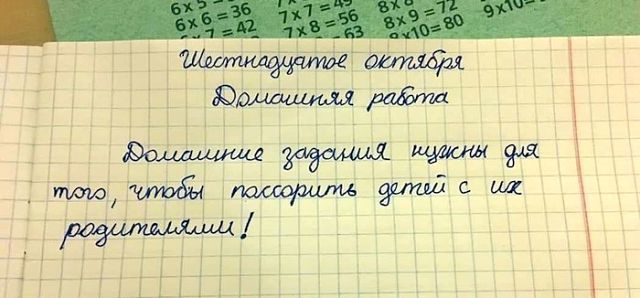 6x5=
6x6=36
6x7=42
7x7=49
7x8=56
=63
8x9=72
8x10=80
9x10=
Шестнадцатое октября
Домашняя работа
Домашние задания нужны для
того, чтобы поссорить детей с их
родителями!